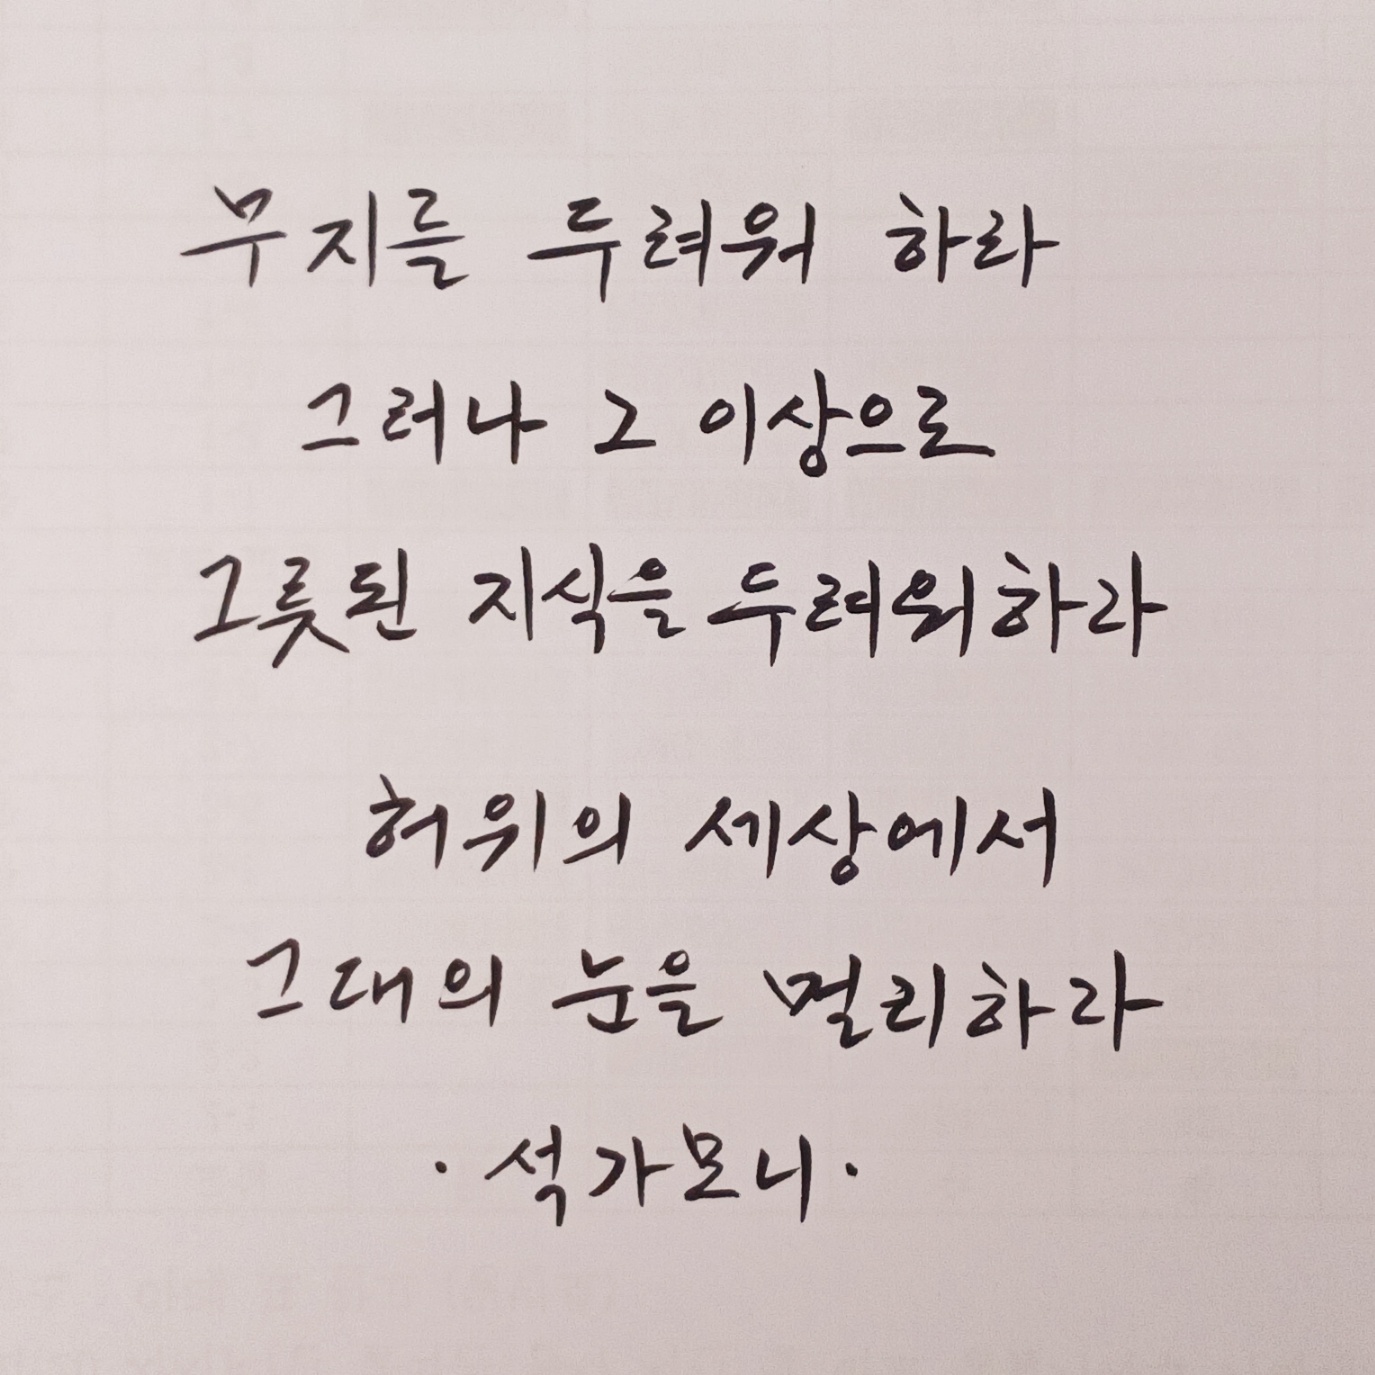 무지를 두려워 하라
그러나 그 이상으로
그릇된 지식을 두려워하라
허위의 세상에서
그대의 눈을 멀리하라
· 석가모니 ·